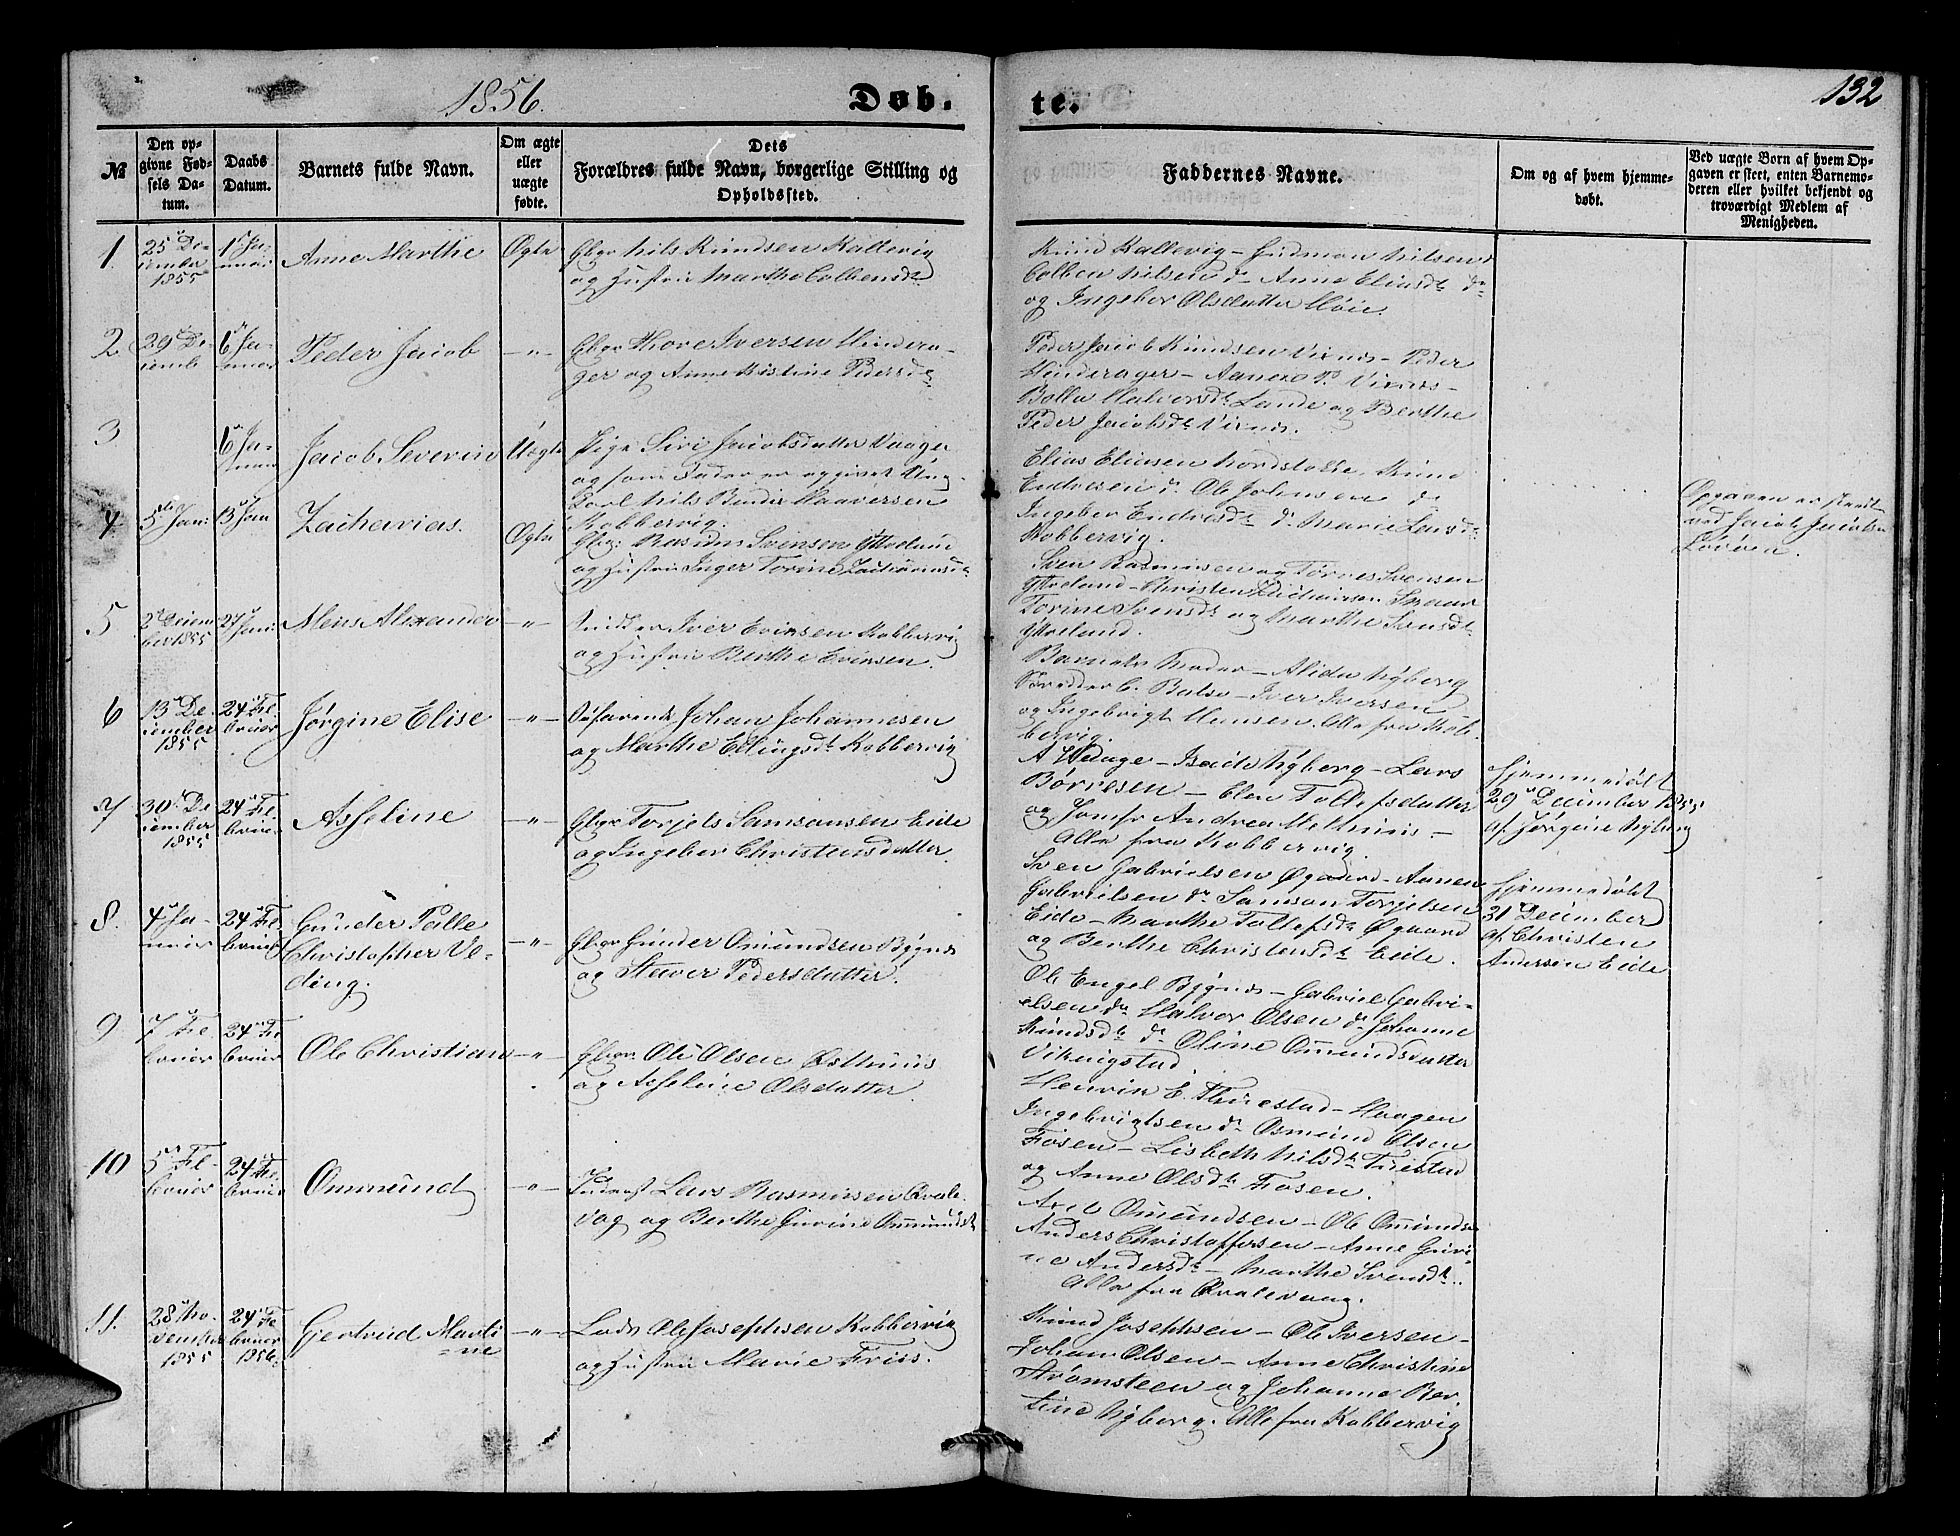 1856.
Døb.
te.
132
№
Den op-
givne Fød-
sels Da-
tum.
Daabs
Datum.
Barnets fulde Navn.
Om ægte
eller
uægte
fødte.
Dets
Forældres fulde Navn, borgerlige Stilling og
Opholdssted.
Faddernes Navne.
Om og af hvem hjemme-
døbt.
Ved uægte Børn af hvem Op-
gaven er skeet, enten Barnemo-
deren eller hvilket bekjendt og
troværdigt Medlem af
Menigheden.
1.
25 De-
cember
1855
1 Ja-
nuar
Anne Marthe
Ægte
Gbgr Nils Knudsen Kallevig
og Hustru Marthe Colbensdr
Knud Kallevig - Gudmon Nilsen
Colben Nilsen dr Anne Eliasdr dr
og Ingebor Olsdatter Høie.
2
29 De-
cemb
6 Ja-
nuar
Peder Jacob
-"-
Gbgr Thore Iversen Hindera-
ger og Anne Kistine Pedersdr
Peder Jacob Knudsen Vixnes - Peder
Hinderager - Vixnes -
Halversdr Lande og Berthe
Peder Jacobsdr Vixnes.
3
6 Ja-
nuar
Jacob Severin
Uægte
Pige Siri Jacobsdatter Vaage
og som Fader er opgivet Ung-
karl Nils Haaversen
Kobbervig.
Elias Eliasen Nordstokke Knud
Endresen dr Ole Johnsen dr
Ingebor Endresdr dr Marie Larsdr
Kobbervig.
Opgaven er skeet
ved Jacob Jacobsen
4.
5te Jan:
13 Jan
Zacharias.
Ægte
Gbgr: Rasmus Svensen Ytreland
og Hustru Inger Torine Zachariasdr
Sven Rasmusen og Tørres Svensen
Ytreland - Christen Zachariasen
Torine Svensdr og Marthe Svensdr
Ytreland.
5
2 Decem
ber 1855
27 Jan:
Mens Alexander
-"-
Iver Evinsen Kobbervig
og Hustru Berthe Evinsen.
Barnets Moder - Alida Nyberg
Balse - Iver Iversen
og Ingebrigt Hansen. Alle fra Kob-
bervig.
6
13 De-
cember
1855
24 Fe
bruar
Jørgine Elise
-"-
Søfarende Johan Johannesen
og Marthe Ellingsdr Kobbervig
A Hauge - Nyberg - Lars
Børresen - Elen Tollefsdatter
og Jomfr Andrea Melhuus -
Alle fra Kobbervig.
Hjemmedøbt
29 December 1855
af Jørgine Nyberg
7
30 De
cember
1855
24 Fe
bruar
Asseline
-"-
Gbgr Torjels Samsonsen Eide
og Ingebor Christensdatter.
Sven Gabrielsen Øgaard - Aanen
Gabrielsen dr Samson Torjelsen
Eide - Marthe Tollefsdr Øgaard
og Berthe Christensdr Eide.
Hjemmedøbt
31 December
af Christen
Andersen Eide
8.
4 Ja-
nuar
24 Fe
bruar
Gunder Palle
Christopher Ve-
ding.
-"-
Gbgr Gunder Omundsen Bygnes
og Staver Pedersdatter.
Ole Engel Bygnes - Gabriel Gabri-
elsen dr Halvor Olsen dr Johanne
Knudsdr dr Oline Ommundsdatter
Vikingstad.
9
7 Fe
bruar
24 Fe
bruar
Ole Christian
-"-
Gbgr Ole Olsen Østhuus
og Asseline Olsdatter.
Henrik E. Thuestad - Haagen
Ingebrigtsen dr Osmund Olsen
Fosen - Lisbeth Nilsdr Tuestad
og Anne Olsdr Fosen.
10
5 Fe-
bruar
24 Fe-
bruar
Ommund
-"-
Inderst Lars Rasmusen Qvale-
vag og Berthe Gurine Ommundsdr
Omundsen - Ole Omunds
Anders Christoffersen - Anne Guri-
ne Andersdr - Marthe Svensdr..
Alle fra Qvalevaag.
11.
28 No-
vember
1855
24 Fe
bruar
1856.
Gertrud Marti
=ne
-"-
Lods Ole Josephsen Kobbervig
og Hustru Marie Friis.
Knud Josephsen - Ole Iversen -
Johan Olsen - Anne Christine
Strømsteen og Johanne Ber-
tine Nyberg. Alle fra Kobbervig